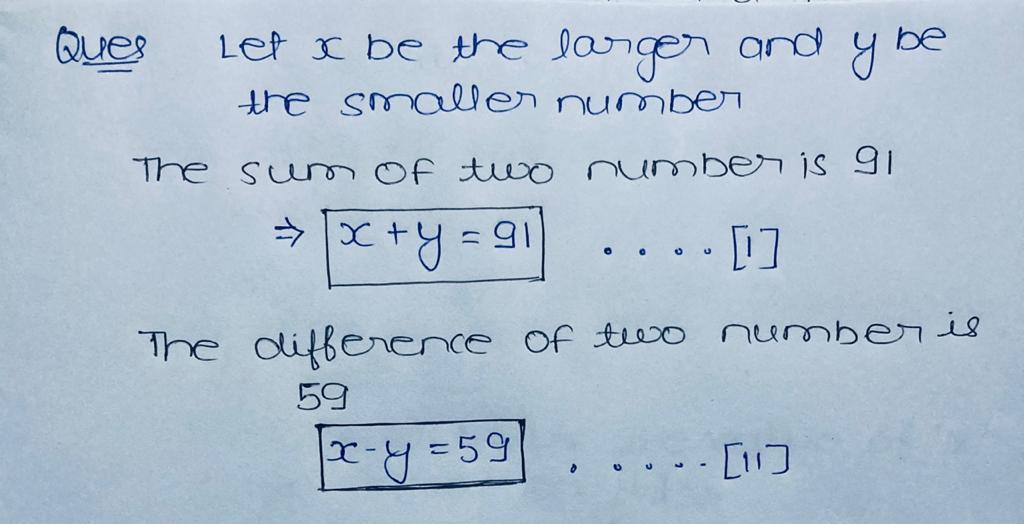 Ques Let x be the larger and y be
the smaller number
The sum of two number is 91
⇒ x + y = 91 .... [1]
The difference of two number is
59
x - y = 59 ...... [11]